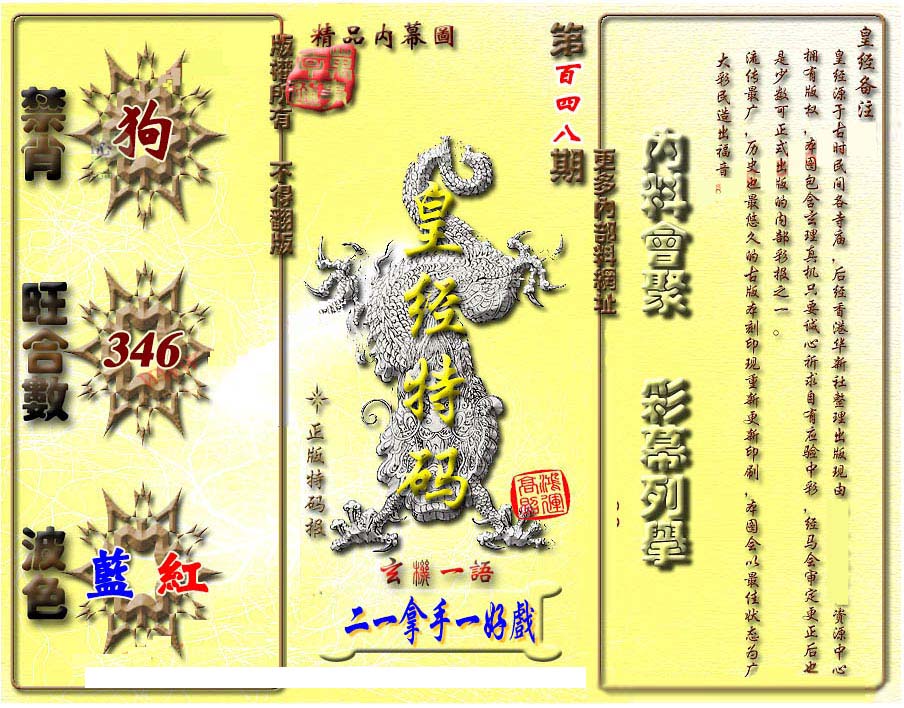 精品内幕圖
版權所有 不得翻版
第百四八期
更多內部料網址
禁肖
狗
旺合數
346
波色
藍 紅
皇经特码
正版特码报
鴻運高照
玄機一語
二一拿手一好戲
内料會聚
彩幕列舉
皇经备注
皇经源于古时民间各寺庙，后经香港华新社整理出版现由 资源中心
拥有版权，本图包含玄理真机只要诚心祈求自有应验中彩，经马会审定更正后也
是少数可正式出版的内部彩报之一。
流传最广，历史也最悠久的古版本刻印现重新更新印刷，本图会以最佳状态为广
大彩民造出福音